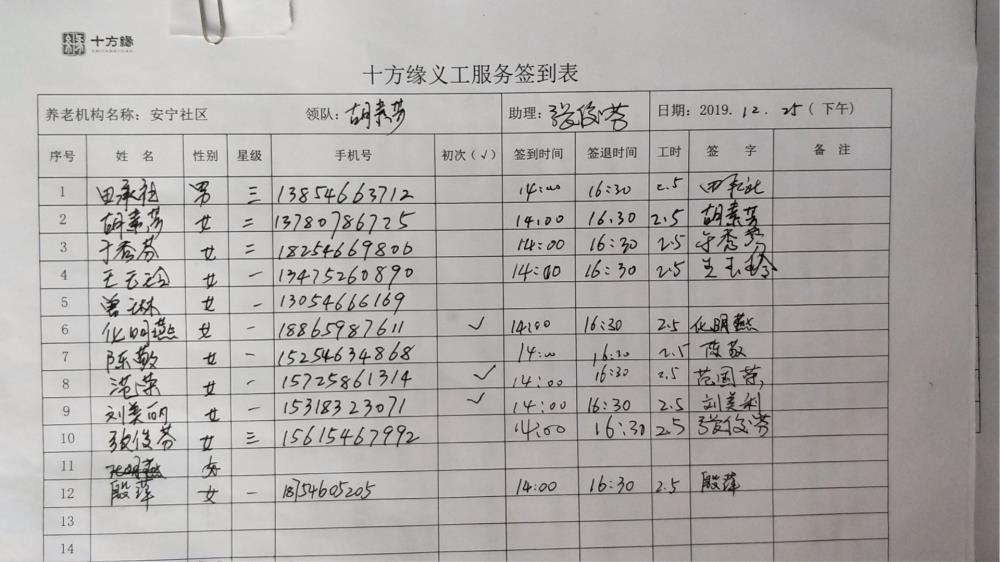 十方缘
十方缘义工服务签到表
养老机构名称：安宁社区 领队：胡素芬 助理：张俊芬 日期：2019.12.25（下午）
序号 姓名 性别 星级 手机号 初次（√） 签到时间 签退时间 工时 签字 备注
1 田承祖 男 三 13854663712 14:00 16:30 2.5
2 胡素芬 女 二 13780786725 14:00 16:30 2.5 胡素芬
3 于秀芬 女 二 18254669806 14:00 16:30 2.5 于秀芬
4 王玉玲 女 一 13475260890 14:00 16:30 2.5 王玉玲
5 曹琳 女 一 13054666169
6 化明燕 女 一 18865987611 √ 14:00 16:30 2.5 化明燕
7 陈敬 女 一 15254634868 14:00 16:30 2.5 陈敬
8 范荣 女 一 15725861314 √ 14:00 16:30 2.5 范国荣
9 刘美丽 女 一 15318323071 √ 14:00 16:30 2.5 刘美丽
10 张俊芬 女 三 15615467992 14:00 16:30 2.5 张俊芬
11 化明燕 女
12 殷萍 女 一 18754605205 14:00 16:30 2.5 殷萍
13
14